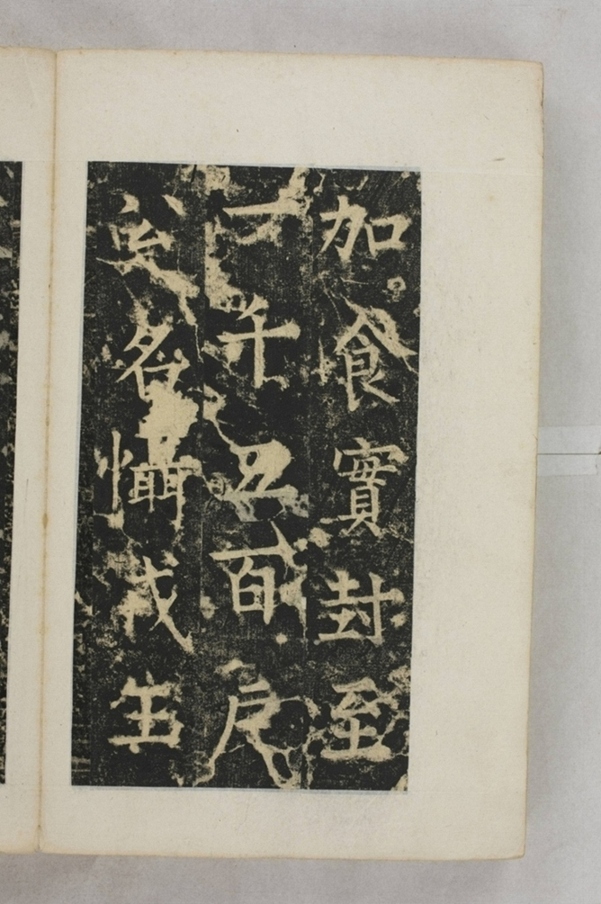 加食實封至
一千五百戶
名懾戎